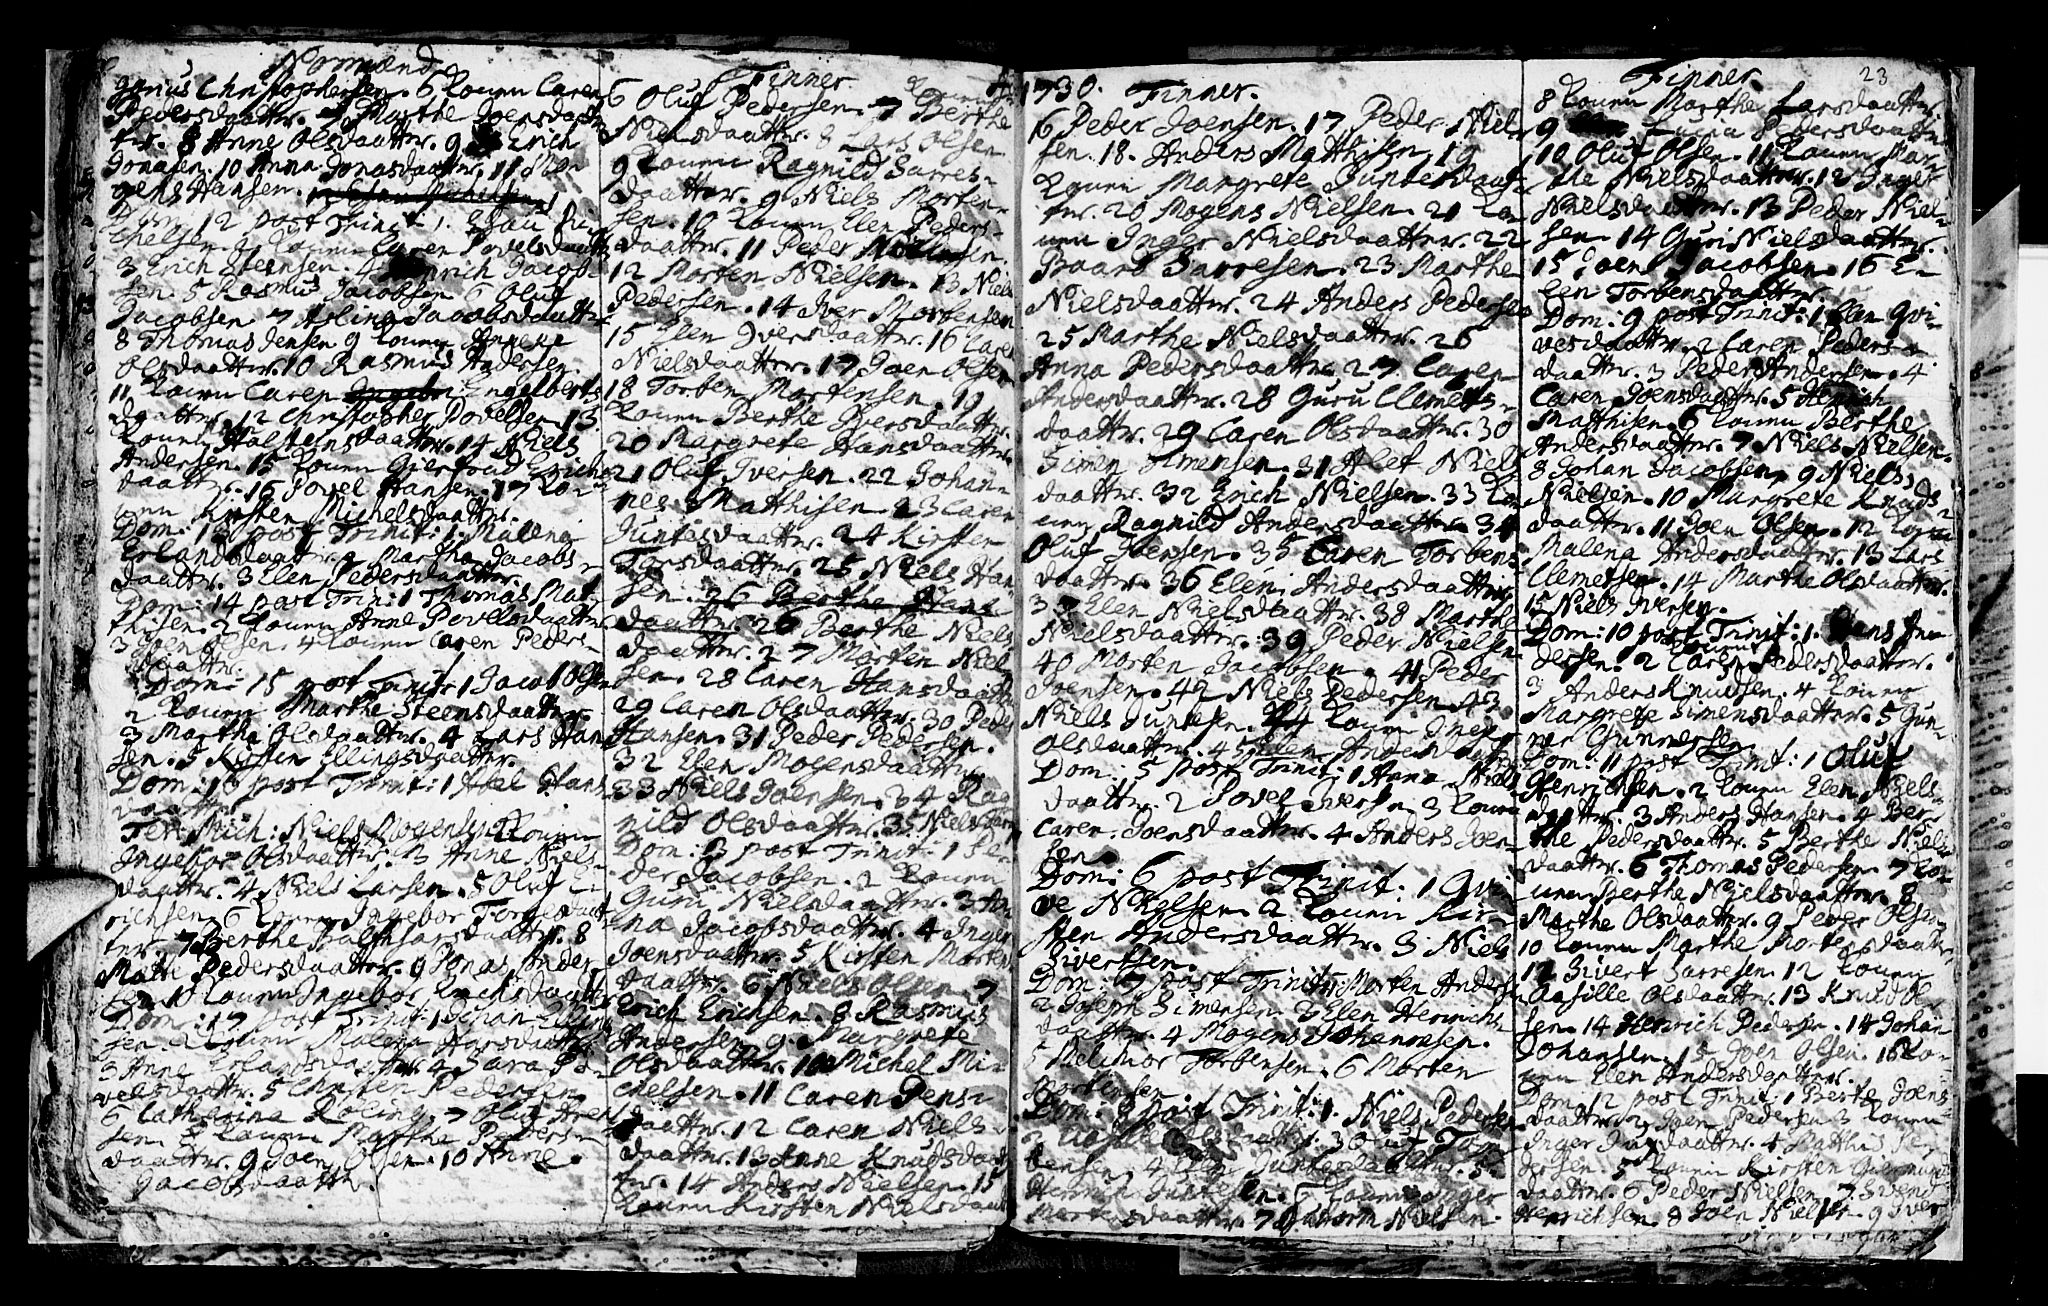 Normænd
gorius Christophersen. 6 Konen Caren
Pedersdaattr. 7 Marthe Joensdaat
tr. 8 Anne Olsdaattr. 9 Erich
Jonasen. 10 Anna Jonasdaattr. 11 Mon
gens Hansen.
Dom: 12 post Trinit: 1.
chelsen 2 Konen Caren Povelsdaattr
3 Erich Steensen. 4 Henrich Jacob-
sen. 5 Rasmus Jacobsen 6 Oluf
Jacobsen 7 Jacobsdaattr
8 Thomas Jensen 9 Konen Anneke
Olsdaattr. 10 Rasmus Andersen
11 Konen Caren Engelberts
daattr. 12 Christopher Povelsen 13
Konen daattr. 14 Niels
Andersen. 15 Konen Giertrud Erichs
daattr. 16 Povel Hansen. 17 Ko-
nen Kirsten Michelsdaattr.
Dom: 13 post Trinit: 1. Malena
Erlandsdaattr. 2 Martha Jacobs
daattr. 3 Elen Pedersdaattr.
Dom: 14 post Trin: 1 Thomas Mat-
thisen. 2 Konen Anne Povelsdaattr
3 Joen Olsen. 4 Konen Caren Peders-
daattr.
Dom: 15 post Trinit: 1 Jacob Olsen
2 Konen Marthe Steensdaattr.
3 Martha Olsdaattr. 4 Lars Han
sen. 5 Kirsten Ellingsdaattr.
Dom: 16 post Trinit: 1 Abel Hans
daattr.
Fest: Mich: Niels Mogensen 2 Konen
Ingebor Olsdaattr. 3 Anne Niels-
daattr. 4 Niels Larsen. 5 Oluf E-
richsen. 6 Konen Ingebor daat
tr. 7 Berthe daattr. 8
Mätte Pedersdaattr. 9 Jonas Ander
sen 10 Konen Ingebor Erichsdaattr
Dom: 17 post Trinit: 1
sen. 2 Konen Malena daattr
3 Anne Erlandsdaattr. 4 Sara Po-
velsdaattr. 5 Christen Pedersen
6 Catharina Roling. 7 Oluf
sen. 8 Konen Marthe Peders-
daattr. 9 Joen Olsen. 10 Anne
Jacobsdaattr.
Finner
6 Oluf Pedersen. 7 Konen Berthe
Nielsdaattr. 8 Lars Olsen
9 Konen Ragnild Sarres-
daattr. 9 Niels Morten-
sen. 10 Konen Elen Peders-
daattr. 11 Peder
12 Morten Nielsen. 13 Niels
Pedersen. 14 Iver Mortensen
15 Elen Iversdaattr. 16 Caren
Nielsdaattr. 17 Joen Olsen
18 Torben Mortensen. 19
Konen Berthe Iversdaattr.
20 Margrete Hansdaattr.
21 Oluf Iversen. 22 Johan-
nes Matthisen 23 Caren
Juntesdaattr. 24 Kirsten
Torsdaattr. 25 Niels Han
sen. 26 Berthe
daattr. 26 Berthe Niels
daattr. 27 Martin Niel
sen. 28 Caren Hansdaattr
29 Caren Olsdaattr. 30 Peder
Hansen. 31 Peder Pedersen.
32 Elen Mogensdaattr.
33 Niels Joensen. 34 Rag
nild Olsdaattr. 35 Niels
Dom: 3 post Trinit: 1
ders Jacobsen. 2 Konen
Guri Nielsdaattr. 3 An
na Jacobsdaattr. 4 Inger
Joensdaattr. 5 Kirsten Morten
daattr. 6 Niels Olsen 7
Erich Erichsen. 8 Rasmus
Andersen. 9. Margrete
Olsdaattr. 10 Michel Mi-
chelsen. 11 Caren Pens-
daattr. 12 Caren Niels
daattr. 13 Anne Knudsdaat
tr. 14 Anders Nielsen. 15
Konen Kirsten Nielsdaat
1730. Finner.
16 Peder Joensen. 17 Peder Niel
sen. 18. Anders Matthisen 19
Konen Margrete Juntesdaat
tr. 20 Mogens Nielsen. 21 Ko
nen Inger Nielsdaattr. 22
Baard Sarresen. 23 Marthe
Nielsdaattr. 24 Anders Pedersen
25 Marthe Nielsdaattr. 26
Anna Pedersdaattr. 27 Caren
Andersdaattr. 28 Guru Clemets-
daattr. 29 Caren Olsdaattr. 30
Simen Simensen. 31 Alet Niels
daattr. 32 Erich Nielsen. 33 Ko
nen Ragnild Andersdaattr. 34
Oluf Joensen. 35 Caren Torbens
daattr. 36 Elen Andersdaattr
37 Elen Nielsdaattr. 38 Marthe
Nielsdaattr. 39 Peder Nielsen
40 Morten Jacobsen. 41 Peder
Joensen. 42 Niels Pedersen 43
Niels Juntesen. 44 Konen Inger
Olsdaattr. 45 Elen Andersdaattr
Dom: 5 post Trinit: 1 Anne Niels
daattr. 2 Povel Iversen. 3 Konen
Caren Joensdaattr. 4 Anders Joen-
sen
Dom: 6 post Trinit. 1 Qvi
ve Nielsen. 2 Konen Kir-
sten Andersdaattr. 3 Niels
Sivertsen.
Dom: 7 post Trinit: Morten Andersen
2 Joseph Simensen. 3 Elen Henrichs-
daattr. 4 Mogens Johannesen.
5 Melchior Torbensen. 6 Morten
Mortensen
Dom: 8 post Trinit: 1. Niels Pedersen
daattr. 3 Oluf
tensen. 4 Elen Juntesdaattr. 5
Henrich 6 Konen Inger
Mortensdaattr. 7 Nielsen.
Finner. 23
8 Konen Marthe Larsdaattr.
9 Konen Pedersdaattr
10 Oluf Olsen. 11 Konen Mar-
the Nielsdaattr. 12 Inger
Nielsdaattr. 13 Peder Niel-
sen. 14 Guri Nielsdaattr.
15 Joen Jacobsen. 16 E-
len Torbensdaattr.
Dom: 9 post Trinit: 1 Elen Qvi-
vesdaattr. 2 Caren Peders-
daattr. 3 Peder Andersen. 4
Caren Joensdaattr. 5 Henrich
Matthisen. 6 Konen Berthe
Andersdaattr. 7 Niels Nielsen.
8 Johan Jacobsen. 9 Niels
Nielsen. 10 Margrete Knuds-
daattr. 11 Joen Olsen. 12 Konen
Malena Andersdaattr. 13 Lars
Clemetsen. 14 Marthe Olsdaattr.
15 Niels Iversen.
Dom: 10 post Trinit: 1. Hans An-
dersen. 2 Konen Caren Pedersdaattr.
3 Anders Knudsen. 4 Konen
Margrete Simensdaattr. 5 Gun-
ner Gunnersen
Dom: 11 post Trinit: 1 Oluf
Henrichsen. 2 Konen Elen Niels-
daattr. 3 Anders Hansen. 4 Ber-
the Pedersdaattr. 5 Berthe Niels
daattr. 6 Thomas Pedersen. 7 Ko-
nen Berthe Nielsdaattr. 8
Marthe Olsdaattr. 9 Peder Olsen
10 Konen Marthe Mortensdaattr.
11 Sivert Sarresen. 12 Konen
Aasille Olsdaattr. 13 Knud Ol-
sen. 14 Henrich Pedersen. 14 Johan
Johansen. 15 Joen Olsen. 16 Ko-
nen Elen Andersdaattr.
Dom: 12 post Trinit: 1 Berte Joens-
daattr. 2 Joen Pedersen 3 Konen
Inger daattr. 4 Matthis Pe-
dersen. 5 Konen Kirsten
daattr. 6 Peder Nielsen. 7 Svend
Henrichsen. 8 Joen Nielsen. 9 Iver